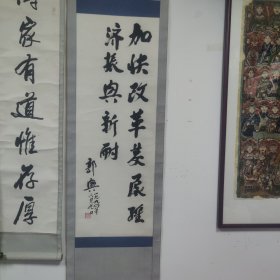 加快改革发展经
济振兴新耐
郭兴
家有道惟存厚